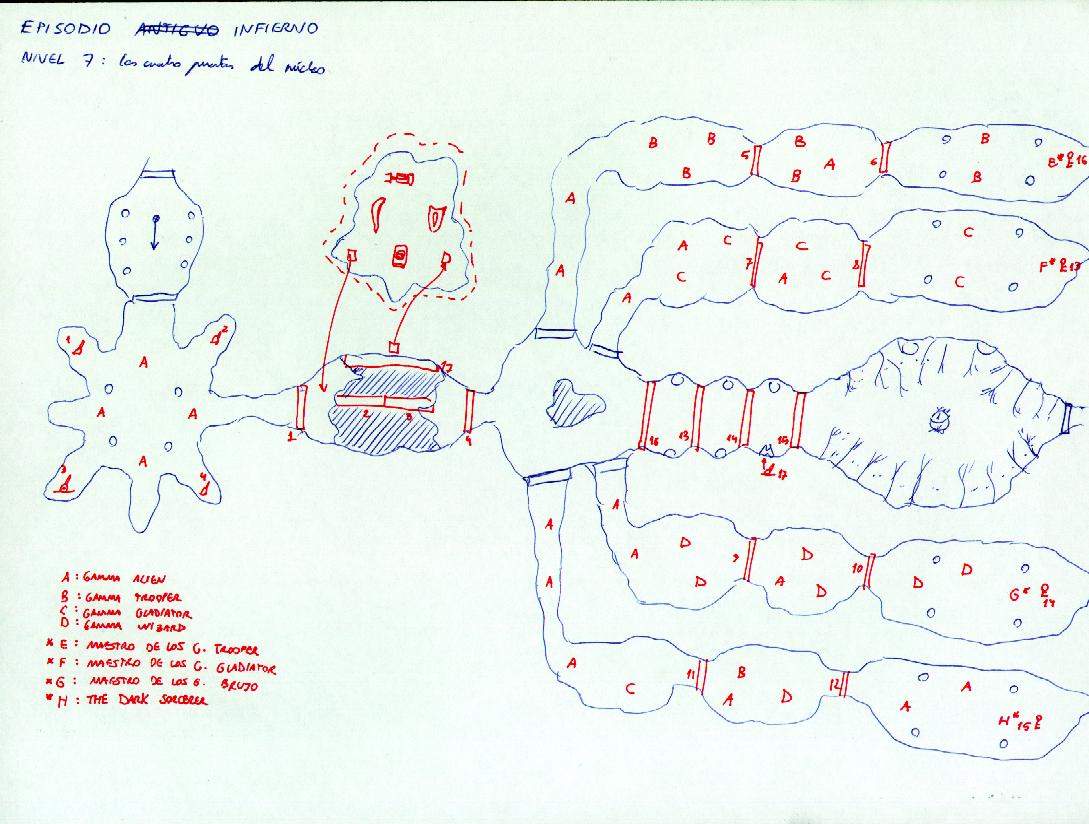 EPISODIO ANTIGUO INFIERNO
NIVEL 7: Las cuatro puertas del núcleo
B B 5 B 6 B
A B B A B E* 16
A
A C 7 C 8 C
C A C C F* 13
A
1 2
A
A A
A
3 4
1 2 3 4 17
16 13 14 15
17
A A
A D 9 D 10 D D
D A D G* 14
A
A 11 B 12 A
C A D A H* 15
A : GAMMA ALIEN
B : GAMMA TROOPER
C : GAMMA GLADIATOR
D : GAMMA WIZARD
* E : MAESTRO DE LOS G. TROOPER
* F : MAESTRO DE LOS G. GLADIATOR
* G : MAESTRO DE LOS G. BRUJO
* H : THE DARK SORCERER